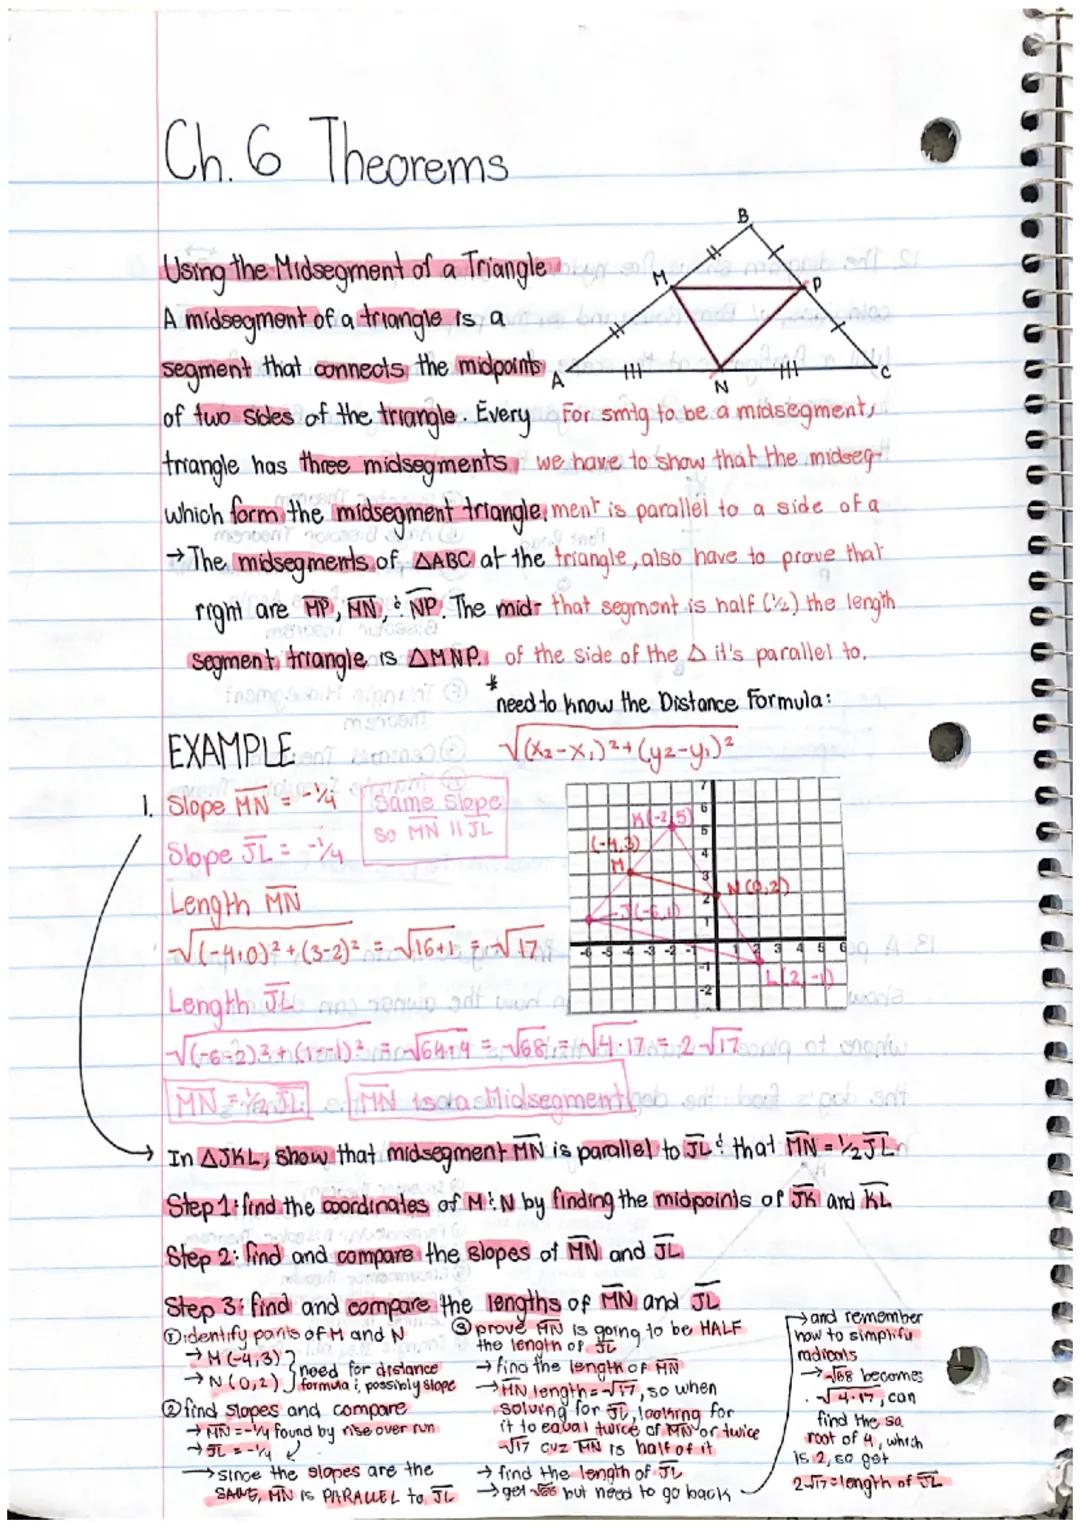 Ch. 6 Theorems
Using the Midsegment of a Triangle
A midsegment of a triangle is a
segment that connects the midpoints
of two sides of the triangle. Every
triangle has three midsegments,
which form the midsegment triangle.
→ The midsegments of △ABC at the
right are MP, MN, & NP. The mid-
segment triangle is △MNP.
B
M
P
A
N
C
For smtg to be a midsegment,
we have to show that the midseg-
ment is parallel to a side of a
triangle, also have to prove that
that segment is half (½) the length
of the side of the △ it's parallel to.
*
need to know the Distance Formula:
√(x₂-x₁)²+(y₂-y₁)²
EXAMPLE
1. Slope MN = -¼
Slope JL = -¼
Same Slope
so MN || JL
Length MN
√(-4+0)²+(3-2)² = √16+1 = √17
Length JL
√(-6-2)2+(1--1)² = √64+4 = √68 = √4·17 = 2√17
MN = ½ JL
MN is a Midsegment
7
6
K(-2,5)
5
(-4,3)
4
M
3
N(0,2)
2
J(-6,1)
1
-6 -5 -4 -3 -2 -1 1 2 3 4 5 6
-1
L(2,-1)
-2
In △JKL, show that midsegment MN is parallel to JL & that MN = ½JL
Step 1: find the coordinates of M & N by finding the midpoints of JK and KL
Step 2: find and compare the slopes of MN and JL
Step 3: find and compare the lengths of MN and JL
① identify points of M and N
→ M(-4,3)
→ N(0,2)
need for distance
formula &, possibly slope
② find slopes and compare
→ MN = -¼ found by rise over run
→ JL = -¼
→ since the slopes are the
SAME, MN is PARALLEL to JL
③ prove MN is going to be HALF
the length of JL
→ find the length of MN
→ MN length = √17, so when
solving for JL, looking for
it to equal twice of MN or twice
√17 cuz MN is half of it
→ find the length of JL
→ get √68 but need to go back
→ and remember
how to simplify
radicals
→ √68 becomes
√4·17, can
find the sq
root of 4, which
is 2, so get
2√17 = length of JL